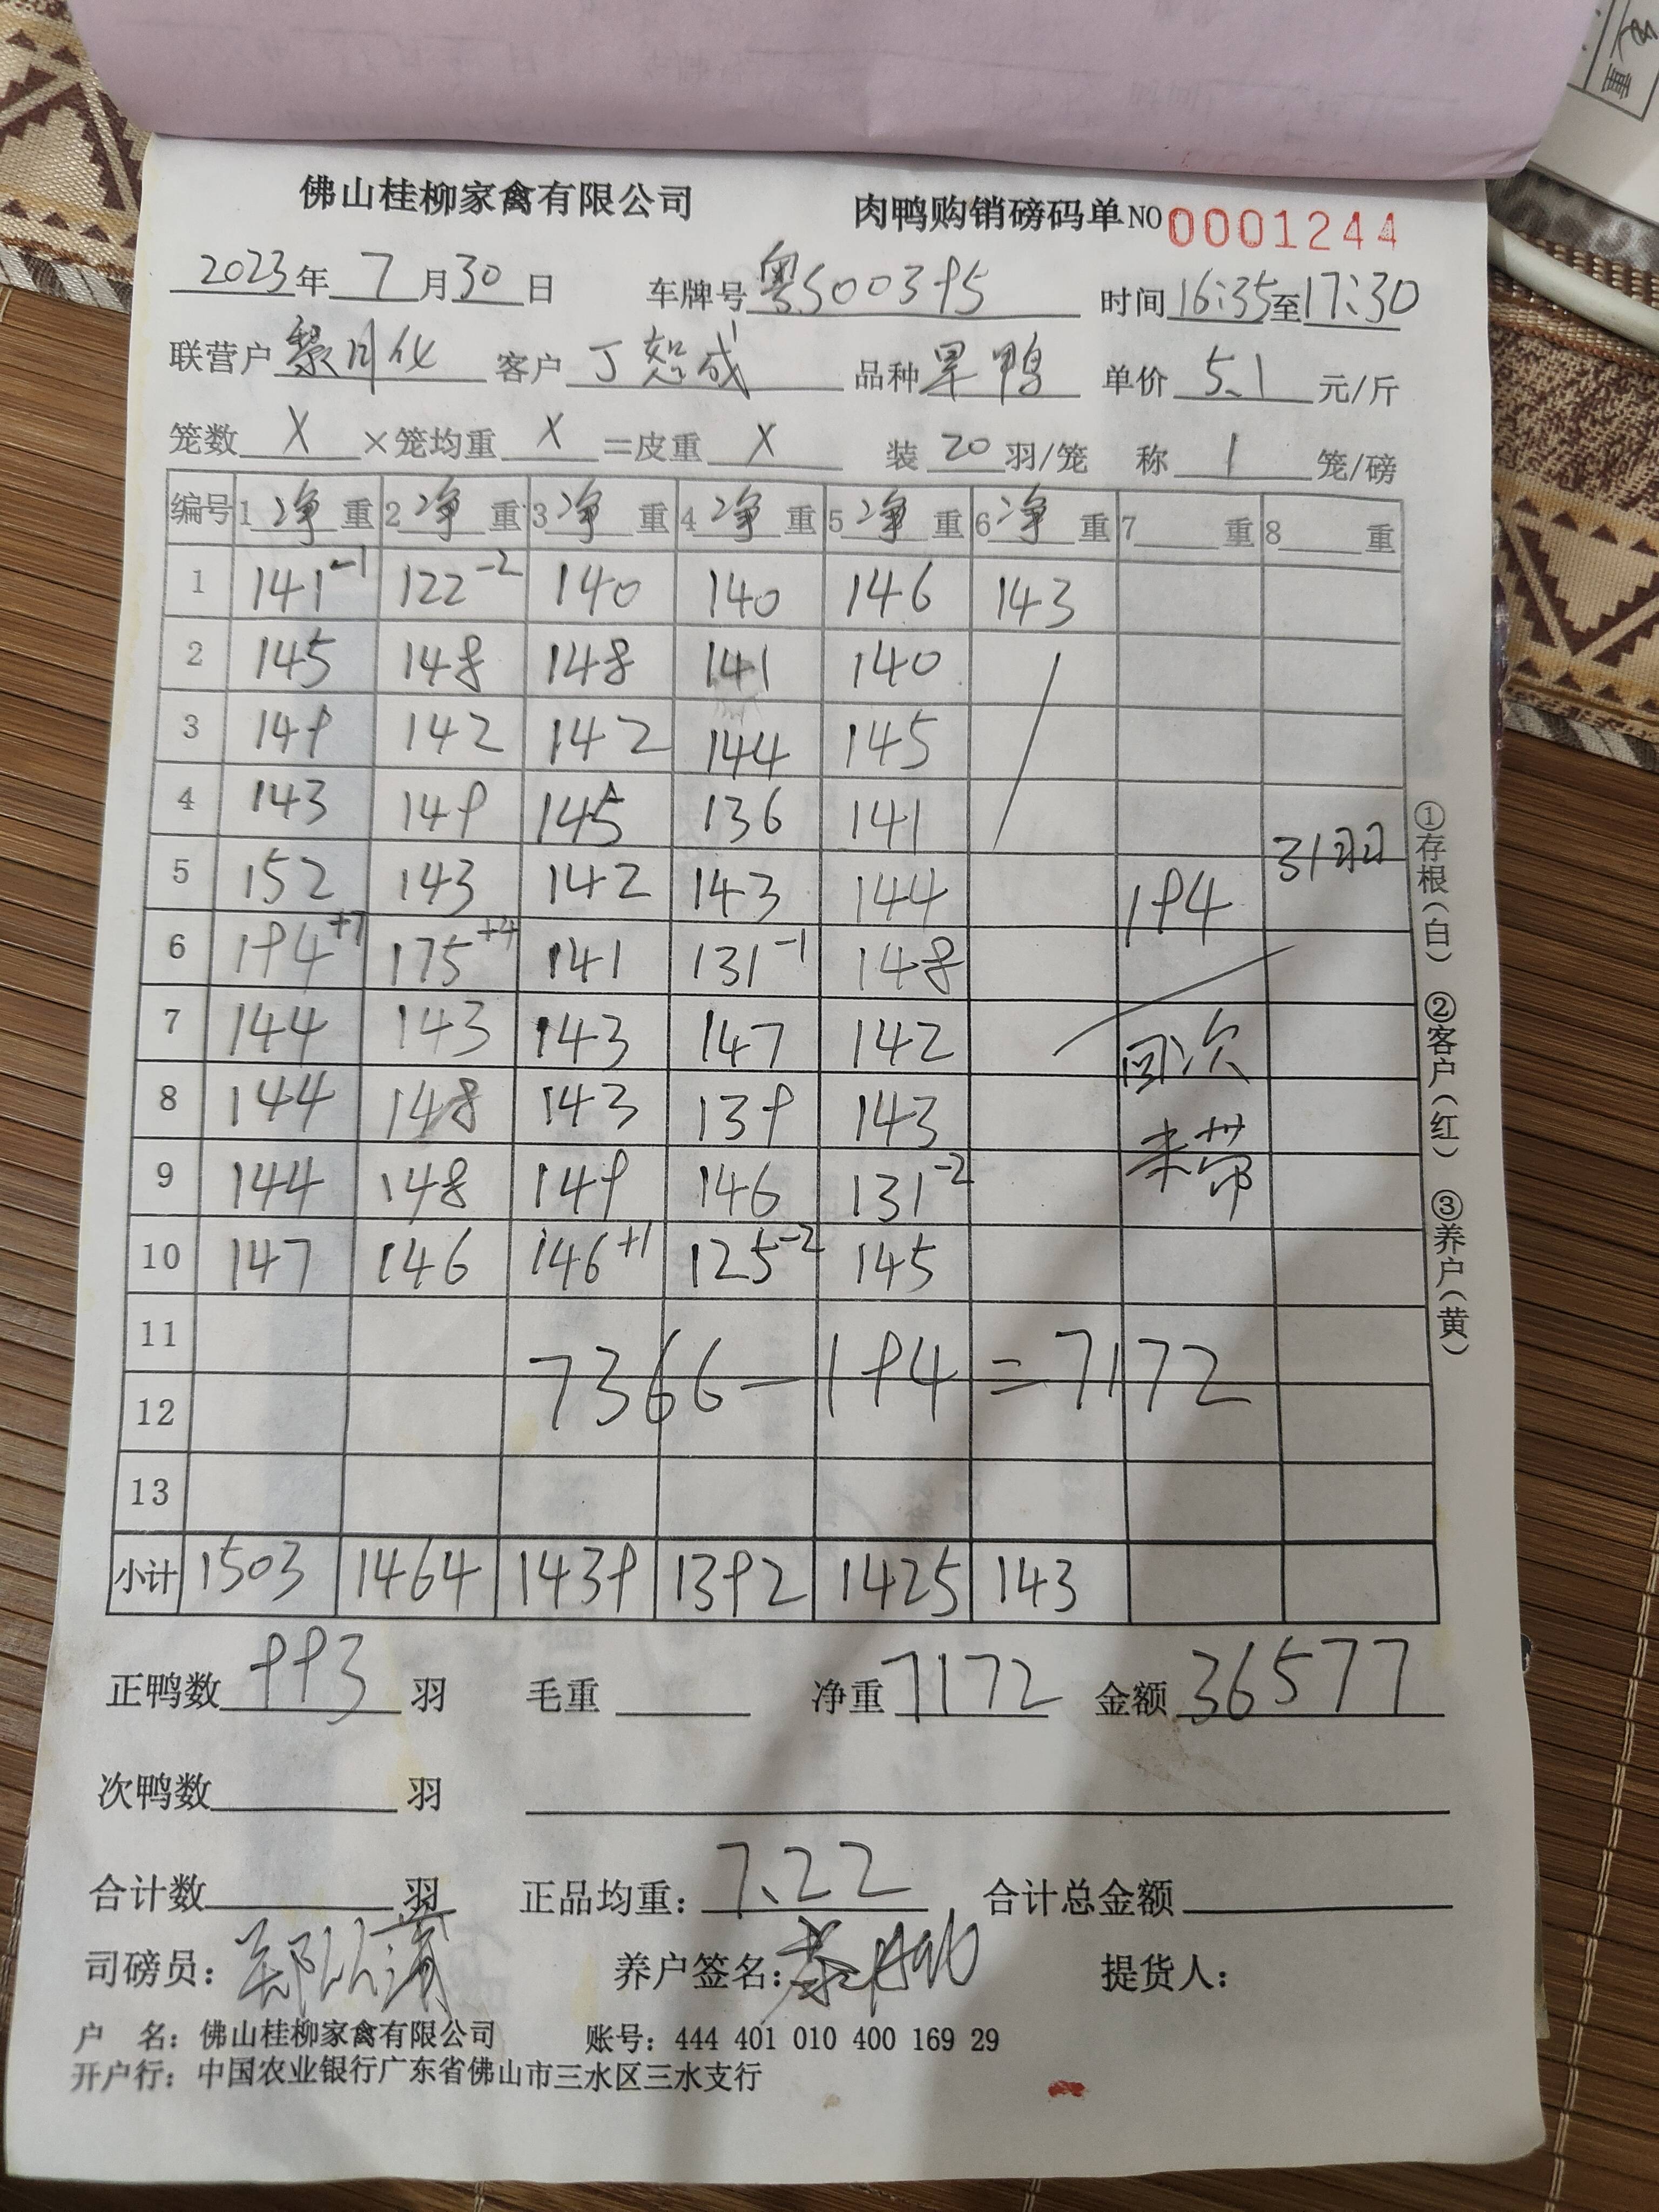 佛山桂柳家禽有限公司 肉鸭购销磅码单 NO 0001244
2023年 7月30日 车牌号 粤S00395 时间 16:35至17:30
联营户 黎 客户 丁 成 品种 旱鸭 单价 5.1 元/斤
笼数 X ×笼均重 X =皮重 X 装 20 羽/笼 称 1 笼/磅
编号 1 净 重 2 净 重 3 净 重 4 净 重 5 净 重 6 净 重 7 重 8 重
1 141-1 122-2 140 140 146 143
2 145 148 148 141 140
3 149 142 142 144 145
4 143 149 145 136 141
5 152 143 142 143 144 194 31羽
6 194+7 175+4 141 131-1 148
7 144 143 143 147 142 回次
8 144 148 143 139 143
9 144 148 149 146 131-2 来带
10 147 146 146+1 125-2 145
11
12 7366-194=7172
13
小计 1503 1464 1439 1392 1425 143
①存根(白) ②客户(红) ③养户(黄)
正鸭数 993 羽 毛重 净重 7172 金额 36577
次鸭数 羽
合计数 羽 正品均重: 7.22 合计总金额
司磅员: 养户签名: 提货人:
户 名: 佛山桂柳家禽有限公司 账号: 444 401 010 400 169 29
开户行: 中国农业银行广东省佛山市三水区三水支行